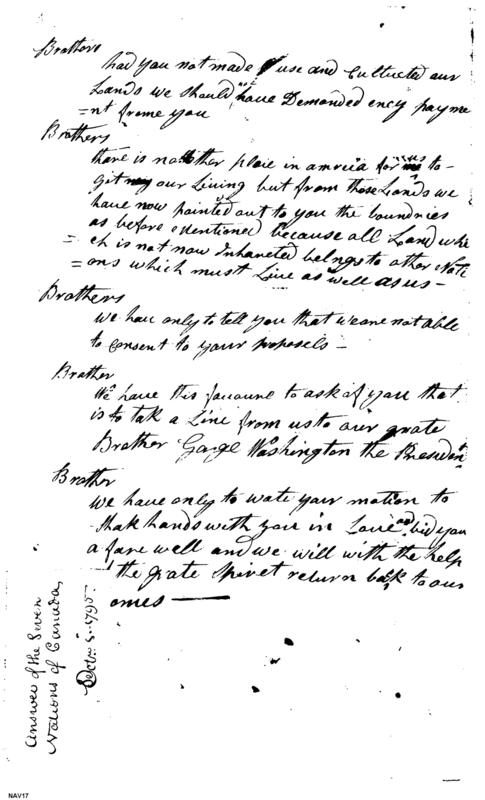 Brothers
had you not made use and Cultueted our
Lands we should have Demanded eney payme
=nt frome you
Brothers
thare is no other place in amrica for us to
git our Living but from those Lands we
have now pointed out to you the boundries
as before mentioned because all Land whi
=ch is not now Inhaneted belongs to other Nati
=ons which must Live as well as us –
Brothers
we have only to tell you that we are not able
to Consent to your proposels –
Brother
We have this favoure to ask of you that
is to take a Line from us to our grate
Brother Gorge Washington the Presedin
Brother
we have only to wate your motion to
shak hands with you in Love and bid you
a fare well and we will with the help
the grate Spiret return back to our
omes —
answer of the Seven
Nations of Canada,
Octr. 5. 1795.
NAV17